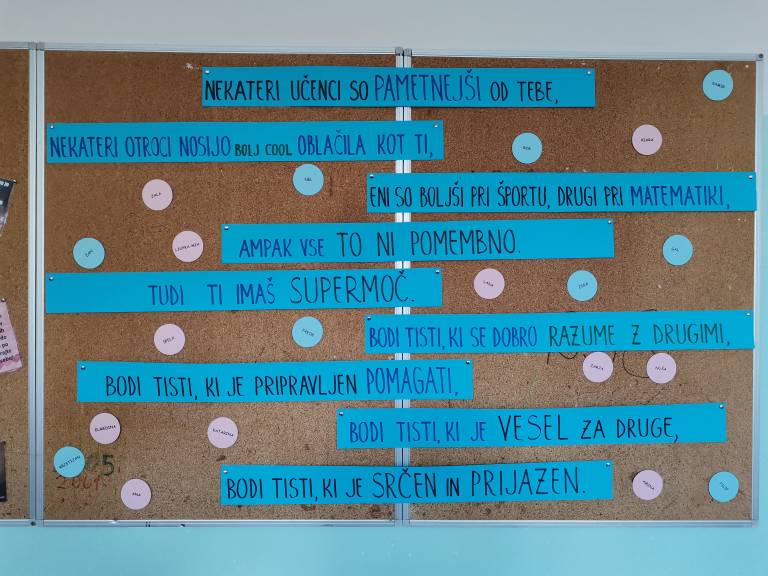 NEKATERI UČENCI SO PAMETNEJŠI OD TEBE,
NEKATERI OTROCI NOSIJO BOLJ COOL OBLAČILA KOT TI,
ENI SO BOLJŠI PRI ŠPORTU, DRUGI PRI MATEMATIKI,
AMPAK VSE TO NI POMEMBNO.
TUDI TI IMAŠ SUPERMOČ.
BODI TISTI, KI SE DOBRO RAZUME Z DRUGIMI,
BODI TISTI, KI JE PRIPRAVLJEN POMAGATI,
BODI TISTI, KI JE VESEL ZA DRUGE,
BODI TISTI, KI JE SRČEN IN PRIJAZEN.
KATARINA